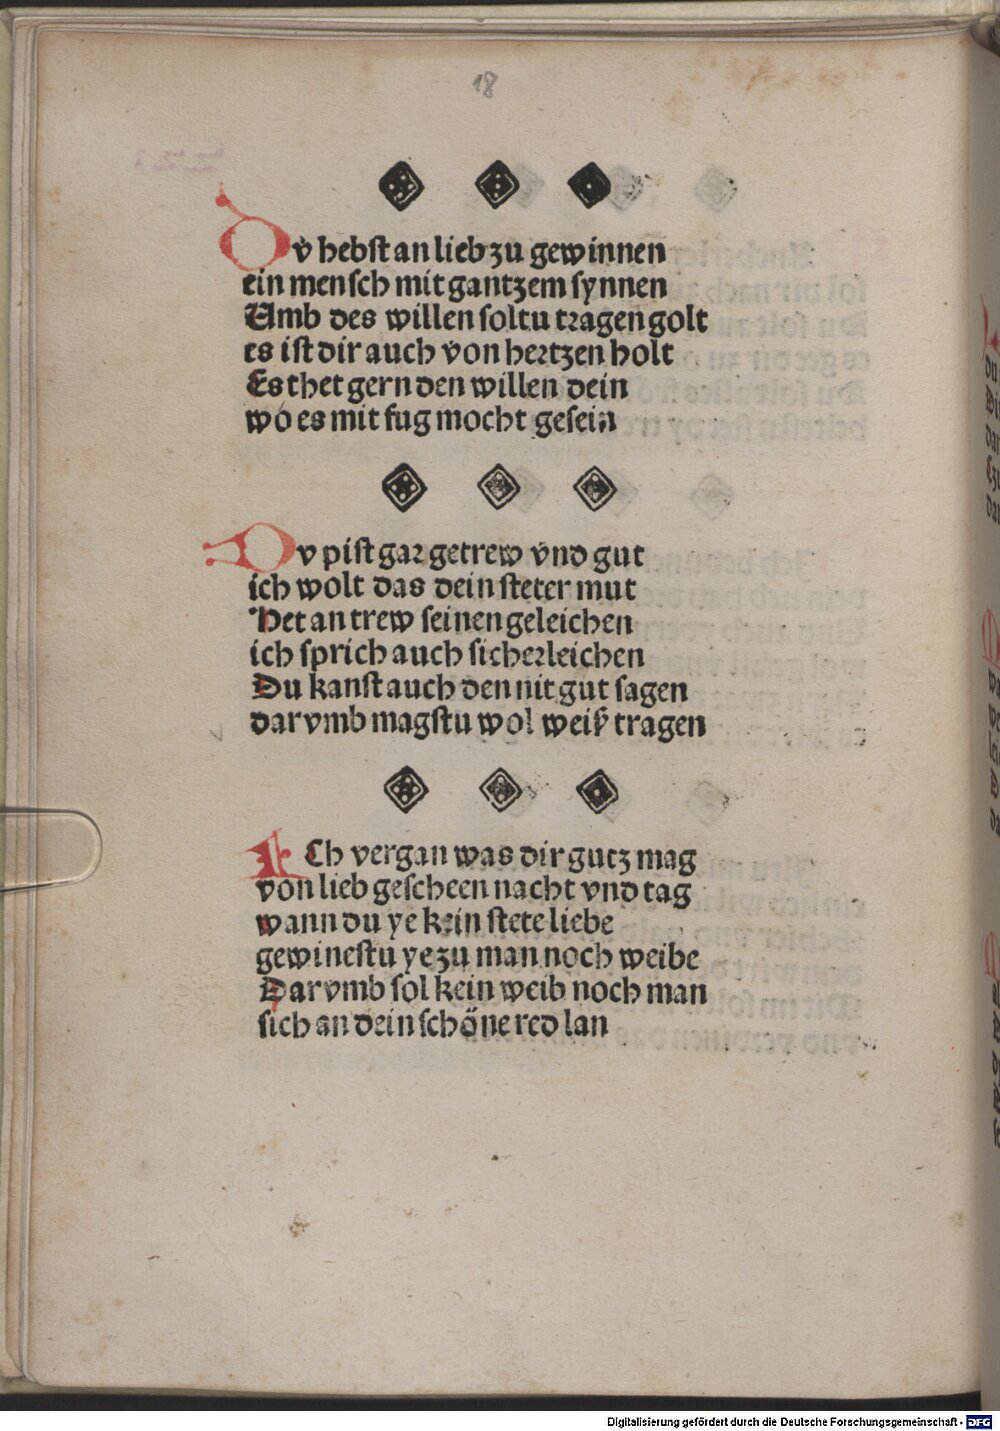 18
Dv̇ hebst an lieb zu gewinnen
ein mensch mit gantzem synnen
Umb des willen soltu tragen golt
es ist dir auch von hertzen holt
Es thet gern den willen dein
wo es mit fug mocht gesein
Dv pist gar getrew vnd gut
ich wolt das dein steter mut
Het an trew seinen geleichen
ich sprich auch sicherleichen
Du kanst auch den nit gut sagen
darvmb magstu wol weiß tragen
ICh vergan was dir gutz mag
von lieb gescheen nacht vnd tag
wann du ye kein stete liebe
gewinestu ye zu man noch weibe
Darvmb sol kein weib noch man
sich an dein schöne red lan
Digitalisierung gefördert durch die Deutsche Forschungsgemeinschaft - DFG